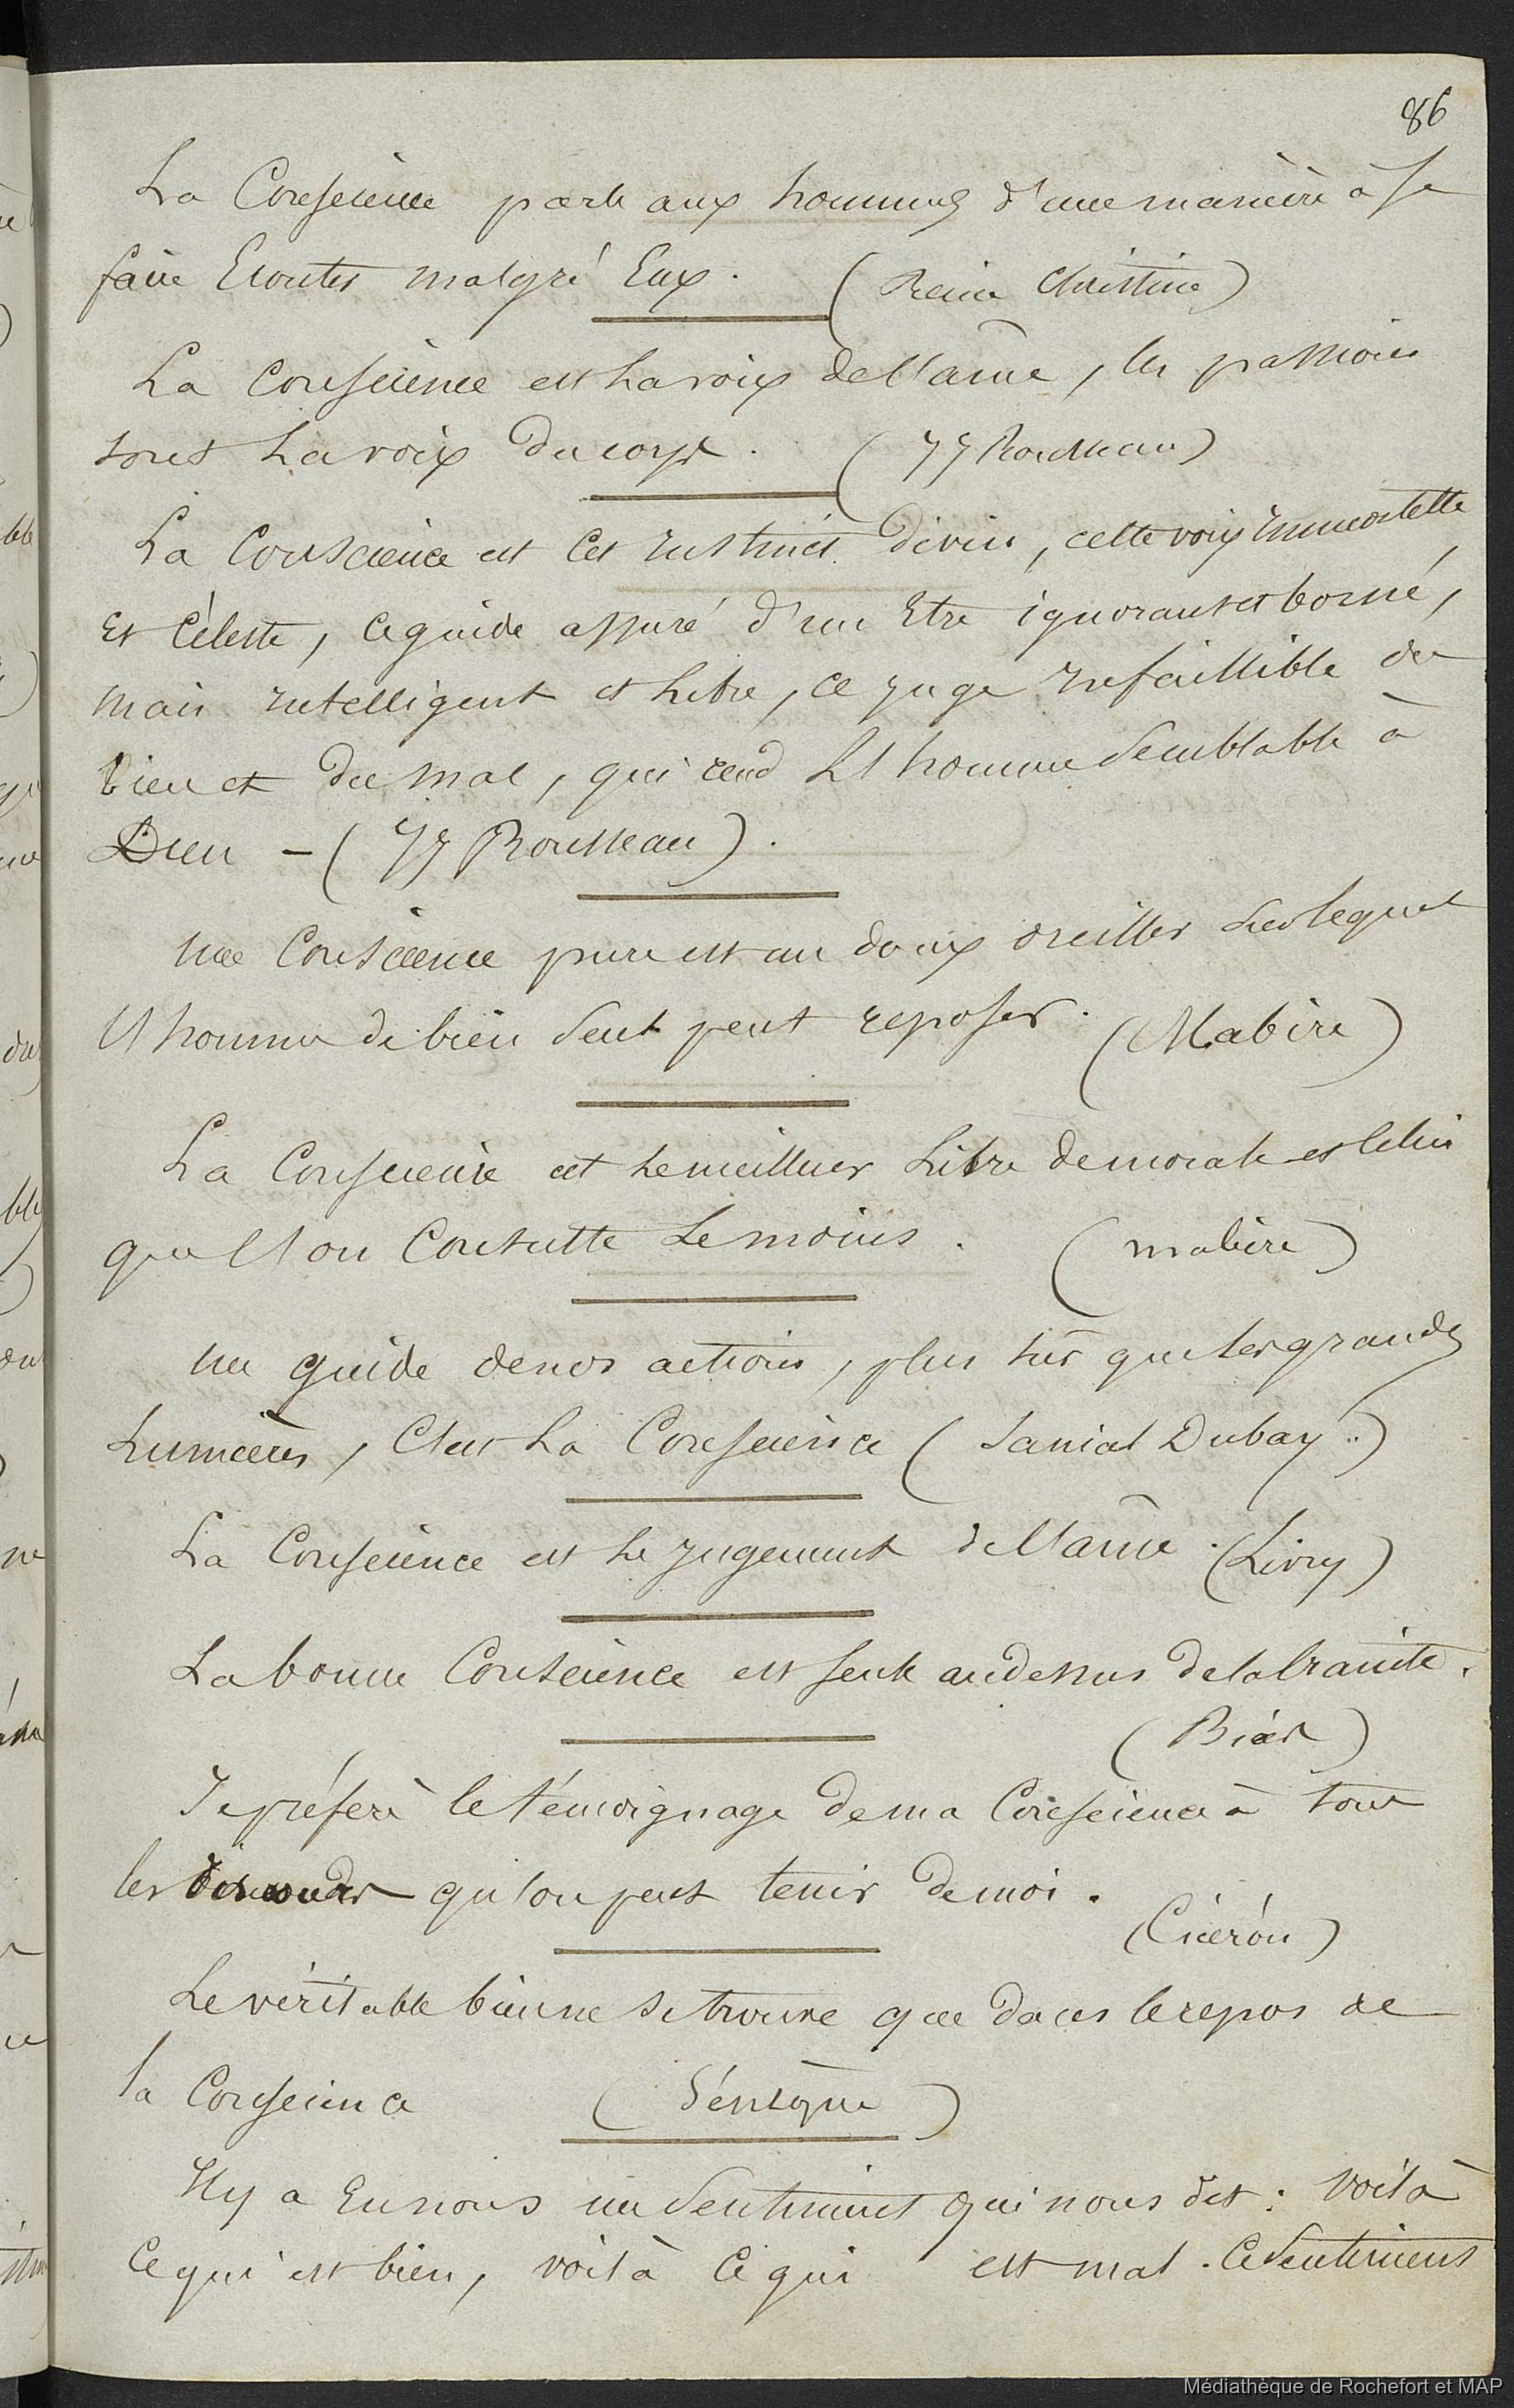 86
La Conscience parle aux hommes d'une manière à se
faire Ecouter malgré Eux. (Reine Christine)
La Conscience est la voix de l'âme, les passions
sont la voix du corps. (JJ Rousseau)
La Conscience est cet instinct divin, cette voix immortelle
et Céleste, ce guide assuré d'un Etre ignorant et borné,
mais intelligent et libre, ce juge infaillible du
bien et du mal, qui rend l'homme semblable à
Dieu - (JJ Rousseau).
Une Conscience pure est un doux oreiller sur lequel
l'homme de bien seul peut reposer. (Mabire)
La Conscience est le meilleur livre de morale et celui
que l'on Consulte le moins. (mabire)
un guide de nos actions, plus sûr que les grandes
lumières, C'est la Conscience (Sanial Dubay..)
La Conscience est le jugement de l'âme. (Livry)
La bonne Conscience est seule au dessus de la crainte.
(Bias)
Je préfère le témoignage de ma Conscience à tous
les discours qu'on peut tenir de moi.
(Cicéron)
Le véritable bien ne se trouve que dans le repos de
la Conscience (Sénèque)
Il y a En nous un Sentiment qui nous dit : voilà
Ce qui est bien, voilà Ce qui est mal. Ce Sentiment
Médiathèque de Rochefort et MAP